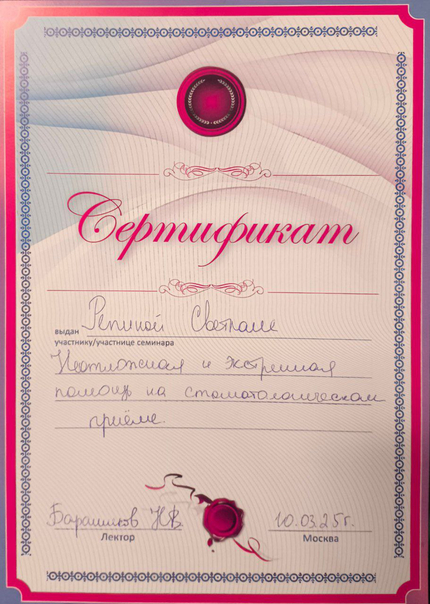 Сертификат
выдан Репиной Светлане
участнику/участнице семинара
Неотложная и экстренная
помощь на стоматологическом
приёме.
Барашков Н.В.
10.03.25г.
Лектор
Москва